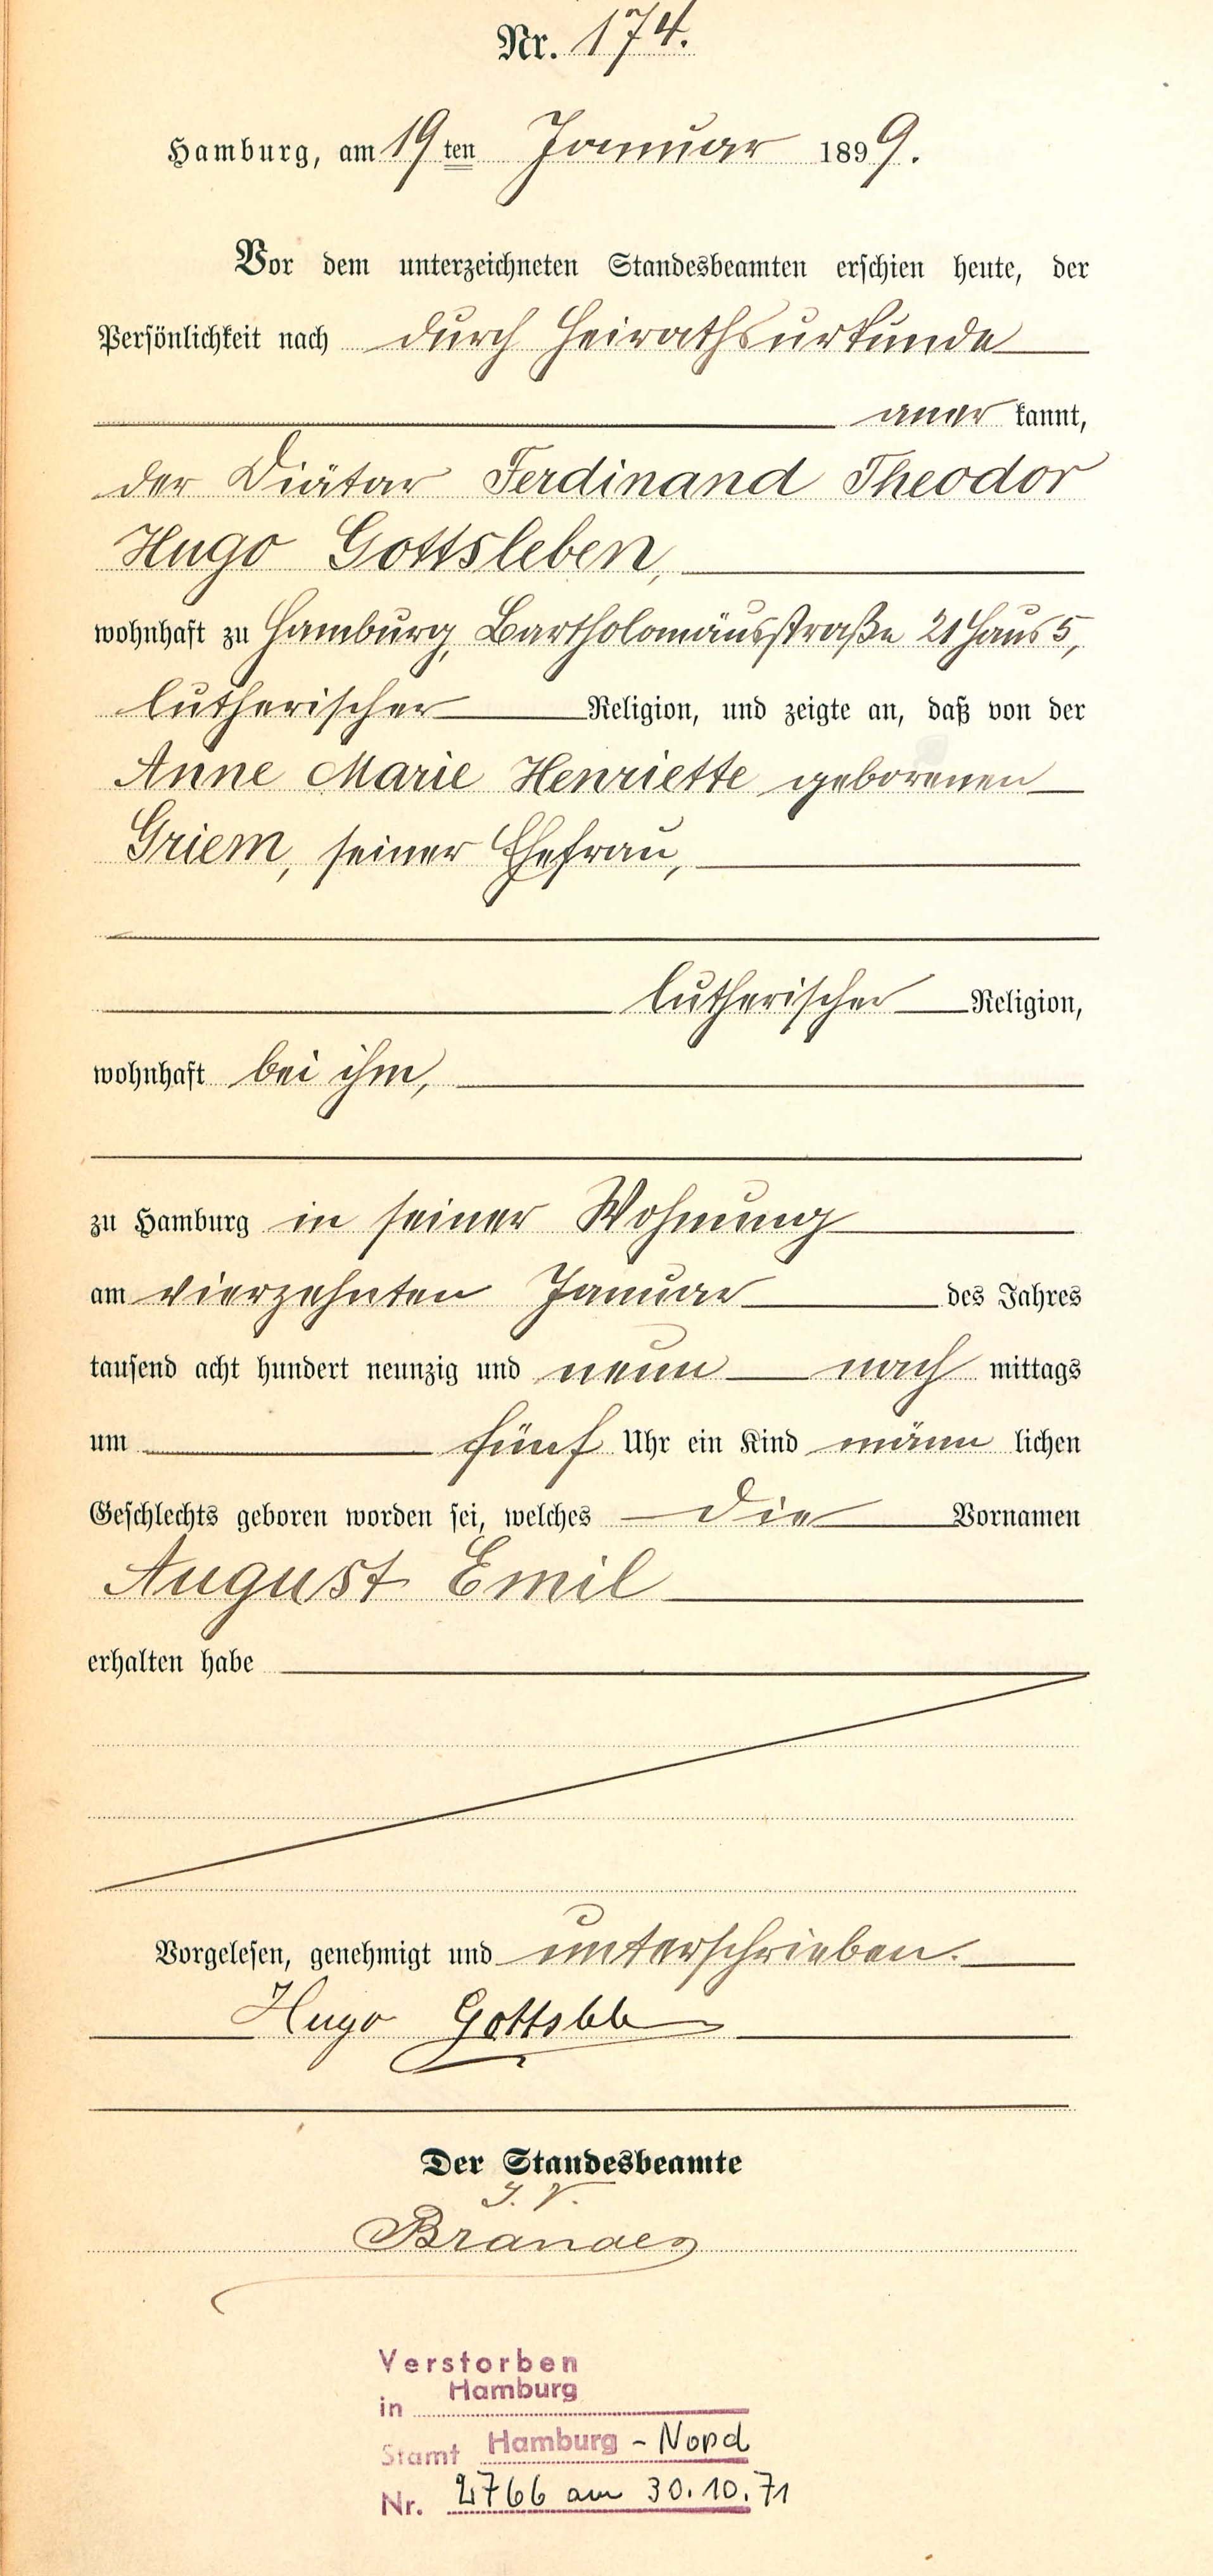 Nr. 174.
Hamburg, am 19 ten Januar 1899.
Vor dem unterzeichneten Standesbeamten erschien heute, der
Persönlichkeit nach durch Heirathsurkunde
aner kannt,
der Diätar Ferdinand Theodor
Hugo Gottsleben,
wohnhaft zu Hamburg, Bartholomäusstraße 21 Haus 5,
lutherischer Religion, und zeigte an, daß von der
Anne Marie Henriette geborenen
Griem, seiner Ehefrau,
lutherischer Religion,
wohnhaft bei ihm,
zu Hamburg in seiner Wohnung
am vierzehnten Januar des Jahres
tausend acht hundert neunzig und neun nach mittags
um fünf Uhr ein Kind männ lichen
Geschlechts geboren worden sei, welches die Vornamen
August Emil
erhalten habe
Vorgelesen, genehmigt und unterschrieben.
Hugo Gottsleben
Der Standesbeamte
I. V.
Brandes
Verstorben
in Hamburg
Stamt Hamburg - Nord
Nr. 2766 am 30.10.71